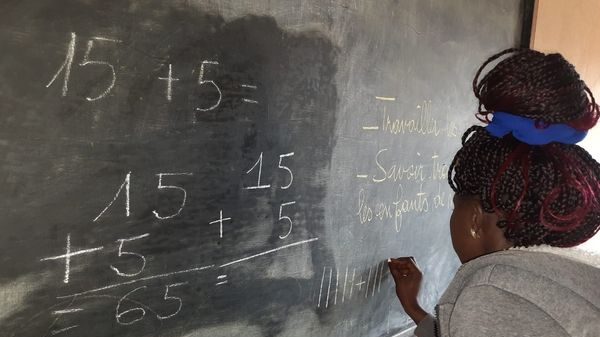 15 + 5 =
15
+ 5
= 65
15
+ 5
=
||||| + |||
– Travailler
– Savoir
les enfants de